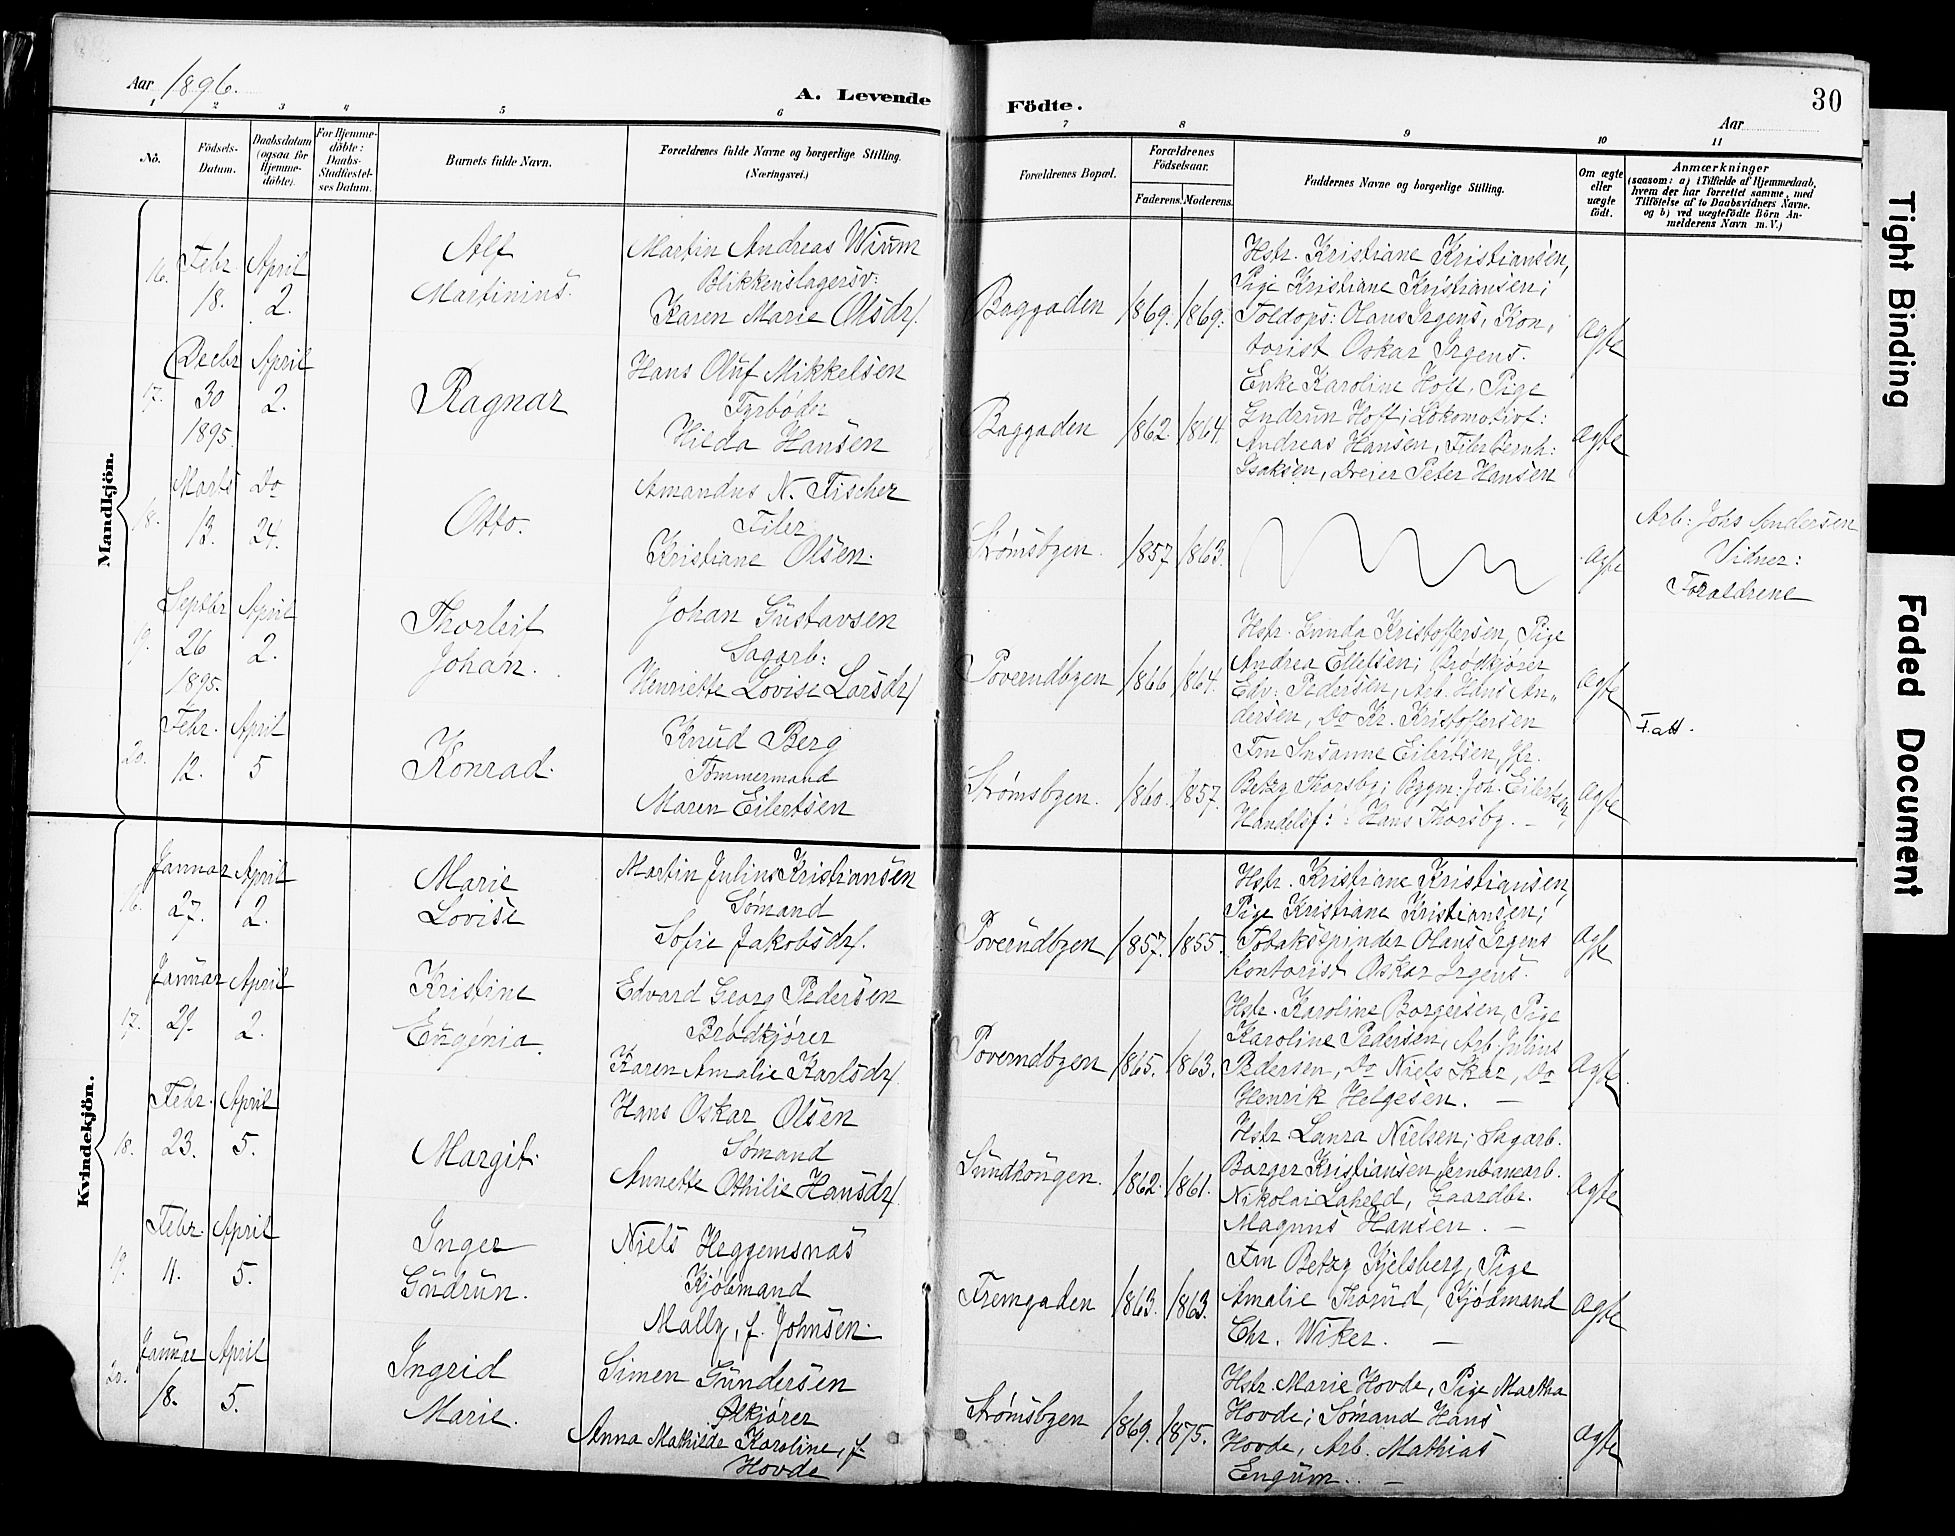 Aar 1896.
A. Levende
Födte.
30
Aar
1 2 3 4 5 6 7 8 9 10 11
No.
Födsels-
Datum.
Daabsdatum
(ogsaa for
Hjemme-
döbte).
For Hjemme-
döbte:
Daabs-
Stadfæstel-
ses Datum.
Barnets fulde Navn.
Forældrenes fulde Navne og borgerlige Stilling.
(Næringsvei.)
Forældrenes Bopæl.
Forældrenes
Födselsaar.
Faderens. Moderens.
Faddernes Navne og borgerlige Stilling.
Om ægte
eller
uægte
födt.
Anmærkninger
(saasom: a) i Tilfælde af Hjemmedaab,
hvem der har forrettet samme, med
Tilföielse af to Daabsvidners Navne.
og b) ved uægtefödte Börn An-
melderens Navn m. V.)
Mandkjön.
16.
Febr
18.
April
2.
Alf
Martinius.
Martin Andreas Wium
Blikkenslagersv:
Karen Marie Olsdr.
Baggaden
1869.
1869.
Hstr. Kristiane Kristiansen,
Pige Kristiane Kristiansen;
Toldops: Olaus Irgens, Kon,
torist Oskar Irgens.
ægte
17.
Decbr
30
1895.
April
2.
Ragnar
Hans Oluf Mikkelsen
Fyrbøder
Hilda Hansen
Baggaden
1862
1864.
Enke Karoline Hoff, Pige
Gudrun Hoff; Lokomotivf:
Andreas Hansen, Filer Bernh:
Isaksen, Dreier Peter Hansen
ægte
18.
Marts
13.
Do
24.
Otto.
Amandus N. Fischer
Filer
Kristiane Olsen.
Strømsbyen.
1857
1863.
ægte
Arb: Johs Andersen
Vidner:
Forældrene
19.
Septbr
26
1895.
April
2.
Thorleif
Johan.
Johan Gustavsen
Sagarb:
Henriette Lovise Larsdr.
Poverudbyen
1866
1864.
Hstr. Gunda Kristoffersen, Pige
Andrea Ellefsen; Brødkjører
Edv: Pedersen, Arb. Hans An„
dersen, Do Kr. Kristoffersen
ægte
Fatt.
20.
Febr.
12.
April
5
Konrad.
Knud Berg
Tømmermand
Maren Eilertsen
Strømsbyen.
1860.
1857.
Fru Susanne Eilertsen, Jfr.
Betzy Thorsby; Bygm: Joh. Eilertsen,
Handelsf: Hans Thorsby. —
ægte
Kvindekjön.
16.
Januar
27.
April
2.
Marie
Lovise
Martin Julius Kristiansen
Sømand
Sofie Jakobsdr.
Poverudbyen
1857.
1855.
Hstr. Kristiane Kristiansen,
Pige Kristiane Kristiansen;
Tobakspinder Olaus Irgens
Kontorist Oskar Irgens.
ægte
17.
Januar
29.
April
2.
Kristine
Eugenia.
Edvard Georg Pedersen
Brødkjører
Karen Amalie Karlsdr.
Poverudbyen
1865.
1863.
Hstr. Karoline Borgersen, Pige
Karoline Pedersen, Arb. Julius
Pedersen, Do Niels Skar, Do
Henrik Helgesen. —
ægte
18.
Febr.
23.
April
5.
Margit.
Hans Oskar Olsen
Sømand
Annette Othilie Hansdr.
Sundhougen.
1862.
1861.
Hstr. Laura Nielsen; Sagarb.
Borger Kristiansen, Jernbanearb.
Nikolai Laheld, Gaardbr.
Magnus Hansen. —
ægte
19.
Febr.
11.
April
5.
Inger
Gudrun.
Niels Heggemsnæs
Kjøbmand
Mally, f. Johnsen.
Fremgaden
1863.
1863.
Fru Betzy Kjelsberg, Pige
Amalie Thorud, Kjøbmand
Chr. Wiker. —
ægte
20.
Januar
18.
April
5.
Ingrid
Marie.
Simen Gundersen
Ølkjører
Anna Mathilde Karoline, f.
Hovde
Strømsbyen
1869.
1875.
Hstr. Marie Hovde, Pige Martha
Hovde; Sømand Hans
Hovde, Arb. Mathias
Engum. —
ægte
Tight Binding
Faded Document